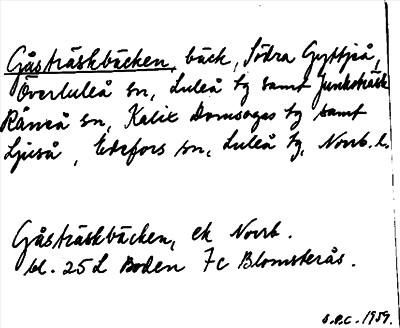 Gåsträskbäcken, bäck, Södra Gyttjeå,
Överluleå sn, Luleå tg samt Junkoträsk
Råneå sn, Kalix Domsagas tg samt
Ljuså, Edefors sn, Luleå tg, Norrb. l.
Gåsträskbäcken, ek Norrb.
bl. 25 L Boden 7c Blomsterås.
S.P.C. 1959.